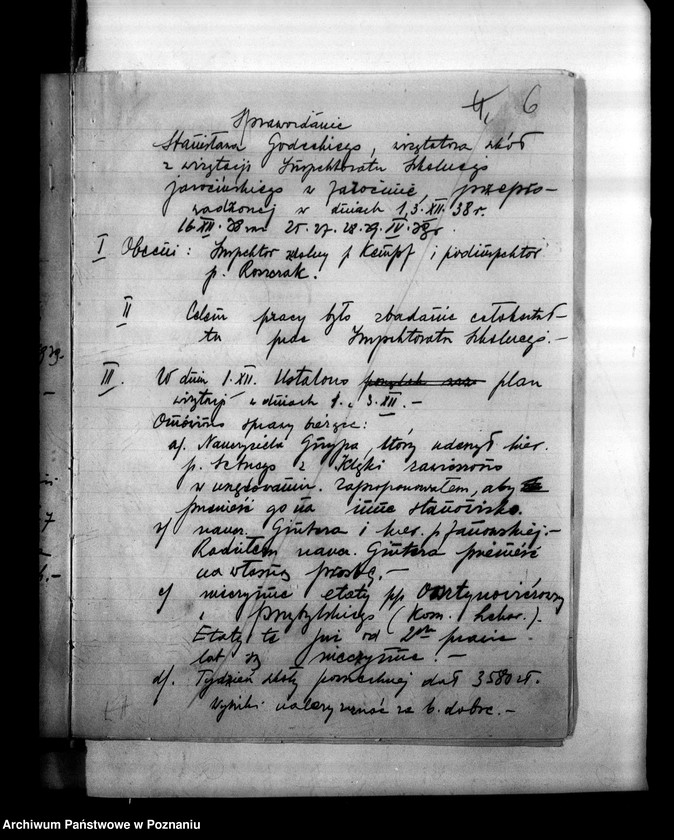 4, 6
Sprawozdanie
Stanisława Godeckiego, wizytatora szkół
z wizytacji Inspektoratu Szkolnego
jarocińskiego w Jarocinie, przepro-
wadzonej w dniach 1, 3. XII. 38 r.
16 XII. 38 oraz 25. 27. 28. 29. IV. 39 r.
I Obecni: Inspektor szkolny p Kempf i podinspektor
p. Roszczak.
II Celem pracy było zbadanie całokształ-
tu prac Inspektoratu Szkolnego.-
III. W dniu 1. XII. Ustalono plan
wizytacji w dniach 1. i 3. XII.-
Omówiono sprawy bieżące:
a). Nauczyciela który uderzył kier.
p. z Klęki zawieszono
w urzędowaniu. Zaproponowałem, aby
przenieść go na inne stanowisko.
b) naucz. Gintera i kier. p. Janowskiej.-
Radziłem naucz. Gintera przenieść
na własną prośbę.-
c) nieczynne etaty pp
i Przybylskiego (Kom. Lekar.).
Etaty te już od 2ch prawie
lat są nieczynne.-
d). Tydzień szkoły powszechnej dał 3580 zł.
Wyniki należy uznać za b. dobre.-
Archiwum Państwowe w Poznaniu